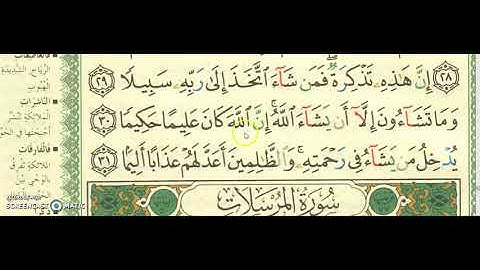 إِنَّ هَٰذِهِۦ تَذْكِرَةٌ ۖ فَمَن شَآءَ ٱتَّخَذَ إِلَىٰ رَبِّهِۦ سَبِيلًا ﴿٢٩﴾
وَمَا تَشَآءُونَ إِلَّآ أَن يَشَآءَ ٱللَّهُ ۚ إِنَّ ٱللَّهَ كَانَ عَلِيمًا حَكِيمًا ﴿٣٠﴾
يُدْخِلُ مَن يَشَآءُ فِى رَحْمَتِهِۦ ۚ وَٱلظَّٰلِمِينَ أَعَدَّ لَهُمْ عَذَابًا أَلِيمًۢا ﴿٣١﴾
سُورَةُ المُرْسَلَات
الرِّيَاحِ الشَّدِيدَةِ
الهُبُوبِ
النَّاشِرَاتِ
المَلَائِكَةِ تَنْشُرُ
فَالفَارِقَاتِ
SCREENCAST MATIC